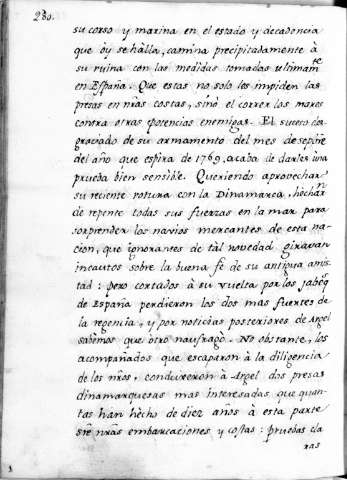 280.
su corso y marina en el estado y decadencia
que oy se halla, camina precipitadamente à
su ruina con las medidas tomadas ultimamte
en España. Que estas no solo les impiden las
presas en nrãs costas, sinò el correr los mares
contra otras potencias enemigas. El suceso des
graciado de su armamento del mes de sepñe
del año que espira de 1769, acaba de darles una
prueba bien sensible. Queriendo aprovechar
su reciente rotura con la Dinamarca, hechàrn
de repente todas sus fuerzas en la mar para
sorprender los navios mercantes de esta na-
cion, que ignorantes de tàl novedad giravan
incautos sobre la buena fè de su antigua amis
tad: pero cortados à su vuelta por los jabeqs
de España perdieron los dos mas fuertes de
la regencia, y por noticias posteriores de Argel
sabemos que otro naufragò. No obstante, los
acompañados que escaparon à la diligencia
de los nrõs, conduxeron à Argel dos presas
dinamarquesas mas interesadas que quan-
tas han hècho de diez años à esta parte
sre nrãs embarcaciones y costas: pruebas cla
ras